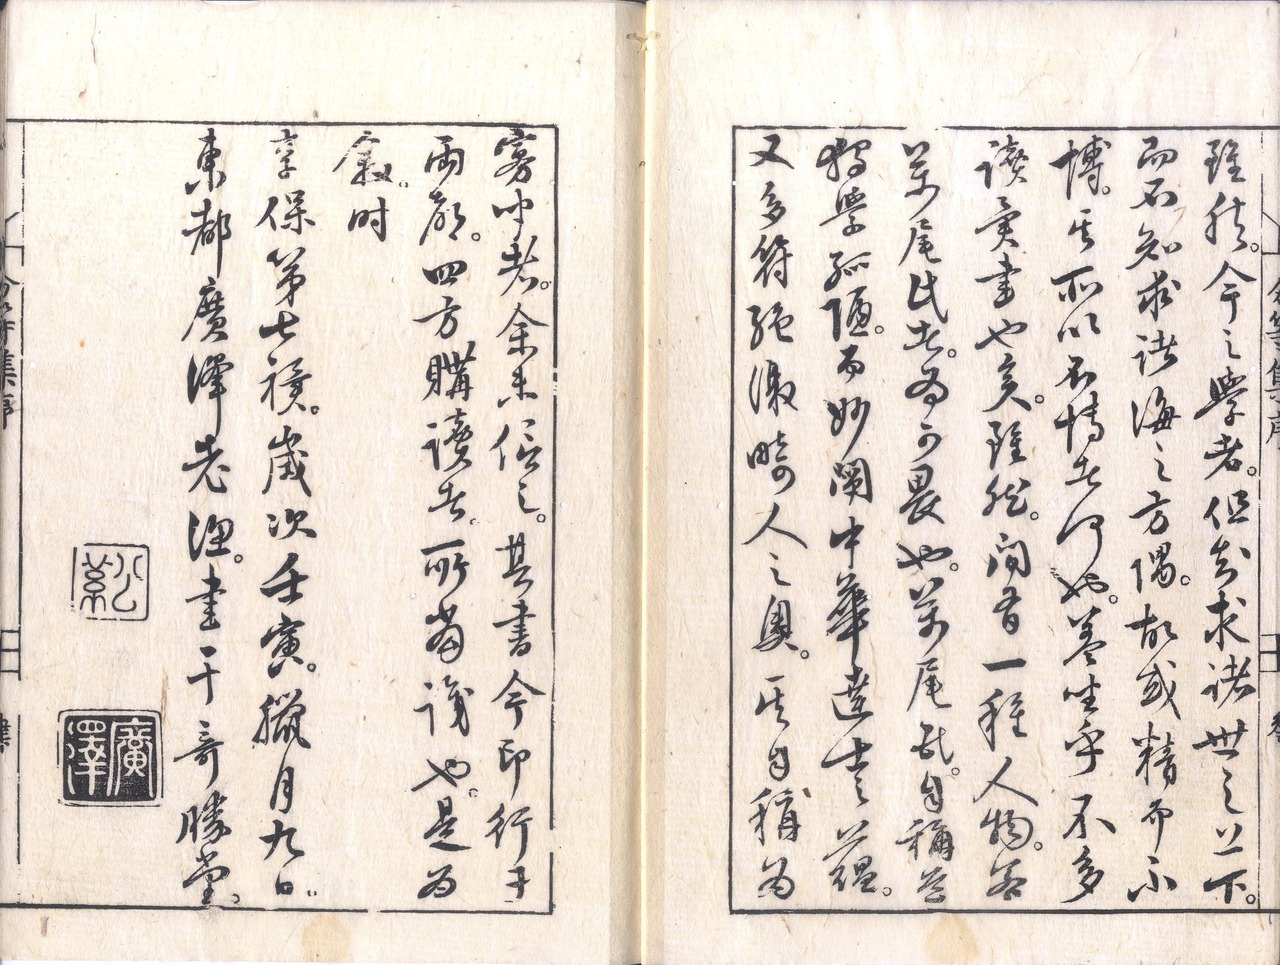 雖然。今之學者。但知求諸世之上下。
而不知求諸海之方隅。故或精而不
博。其所以不博者何也。蓋坐乎不多
讀異書也矣。雖然。間有一種人物。若
万尾氏者。為可畏也。万尾氏。自稱
獨學孤陋。而妙闡中華達士之蘊。
又多符絕激畸人之奧。其自稱為
寡聞者。余未信之。其書今印行于
兩都。四方購讀者。所當識也。是為
敘。时
享保第七稔。歲次壬寅。臘月九日。
東都廣澤老漁。書于奇勝堂。
廣澤